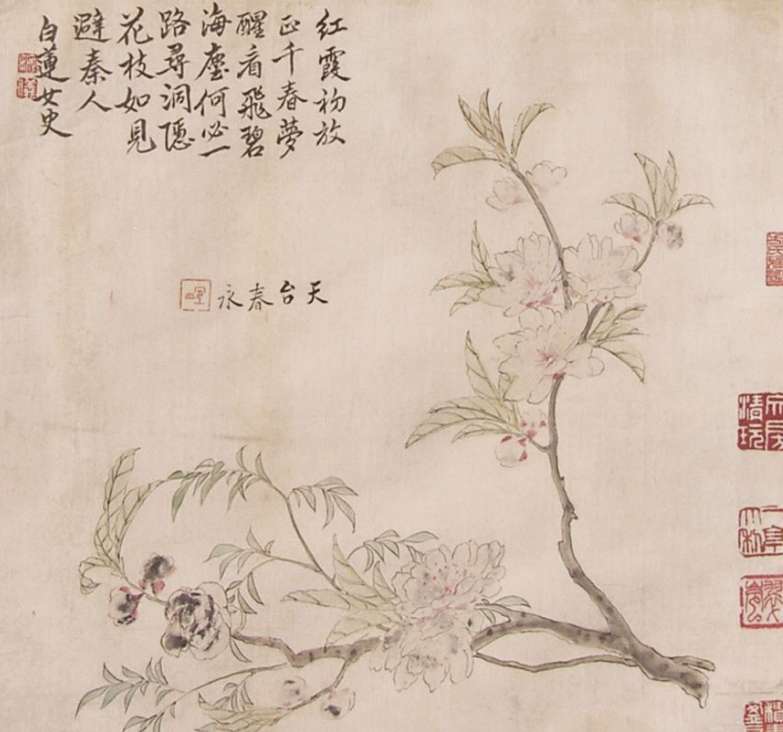 红霞初放
正千春夢
醒看飛碧
海塵何必一
路尋洞隱
花枝如見
避秦人
白蓮女史
天台春永